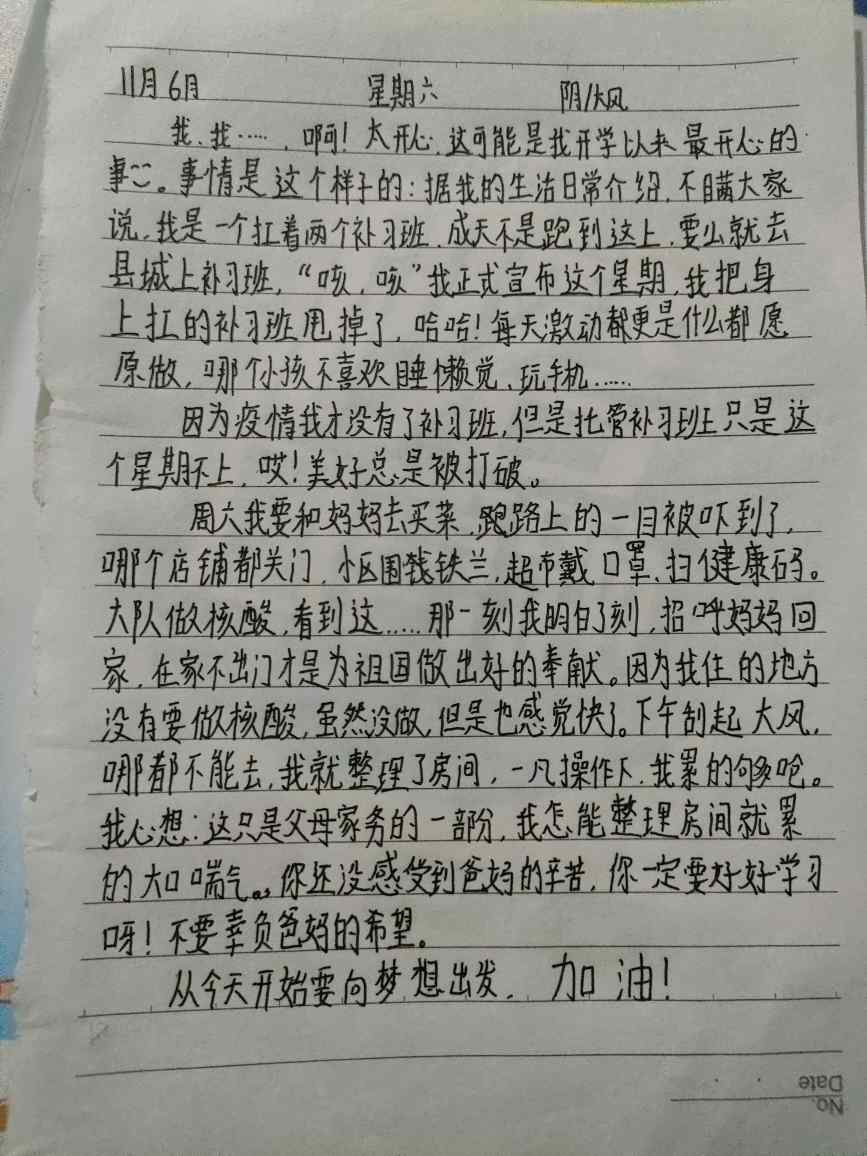 11月6月 星期六 阴/大风
我、我……，啊！太开心，这可能是我开学以来最开心的
事。事情是这个样子的：据我的生活日常介绍，不瞒大家
说，我是一个扛着两个补习班，成天不是跑到这上，要么就去
县城上补习班，“咳，咳”我正式宣布这个星期，我把身
上扛的补习班甩掉了，哈哈！每天激动都更是什么都愿
原做，哪个小孩不喜欢睡懒觉、玩手机……
因为疫情我才没有了补习班，但是托管补习班上只是这
个星期不上，哎！美好总是被打破。
周六我要和妈妈去买菜，跑路上的一目被吓到了，
哪个店铺都关门，小区围我铁兰，超市戴口罩、扫健康码。
大队做核酸，看到这……那一刻我明白了刻，招呼妈妈回
家，在家不出门才是为祖国做出好的奉献。因为我住的地方
没有要做核酸，虽然没做，但是也感觉快了。下午刮起大风，
哪都不能去，我就整理了房间，一凡操作下，我累的够呛。
我心想：这只是父母家务的一部分，我怎能整理房间就累
的大口喘气。你还没感受到爸妈的辛苦，你一定要好好学习
呀！不要辜负爸妈的希望。
从今天开始要向梦想出发，加油！
No.
Date